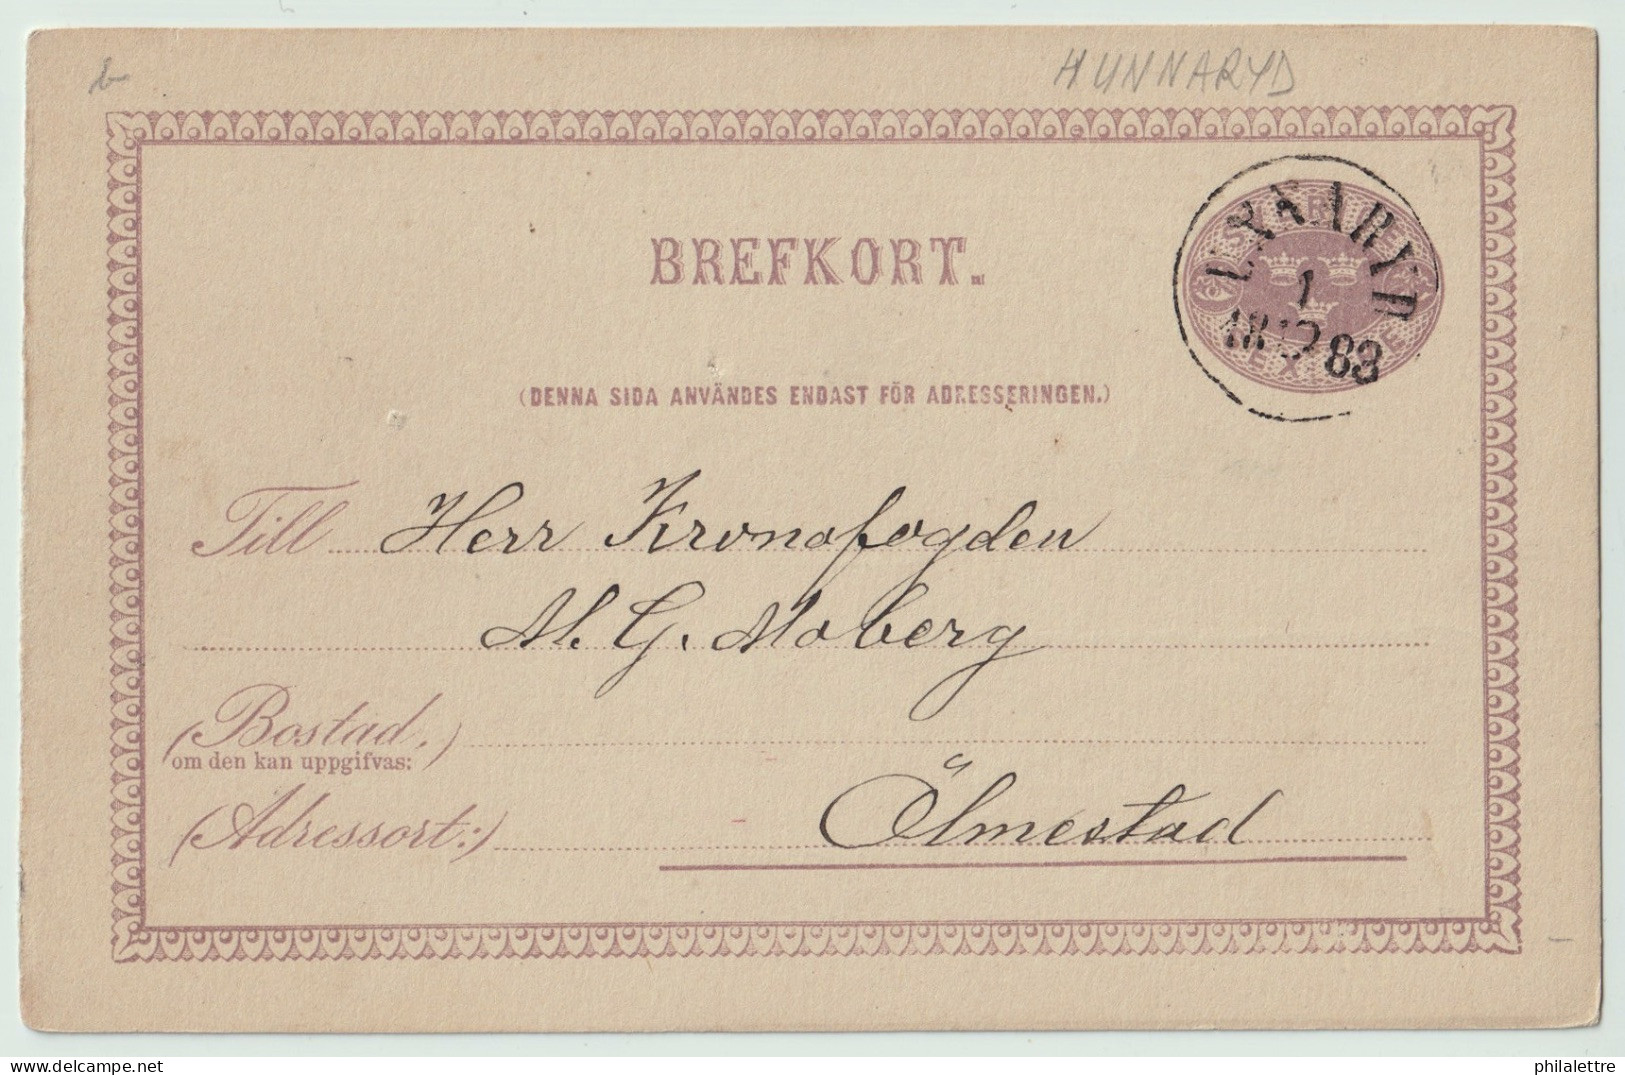 HUNNARYD
BREFKORT.
UNNARYD
1
83
(DENNA SIDA ANVÄNDES ENDAST FÖR ADRESSERINGEN.)
Till Herr Kronofogden
M. G. Moberg
(Bostad,)
om den kan uppgifvas:
(Adressort:) Ölmestad
philalettre
delcampe.net